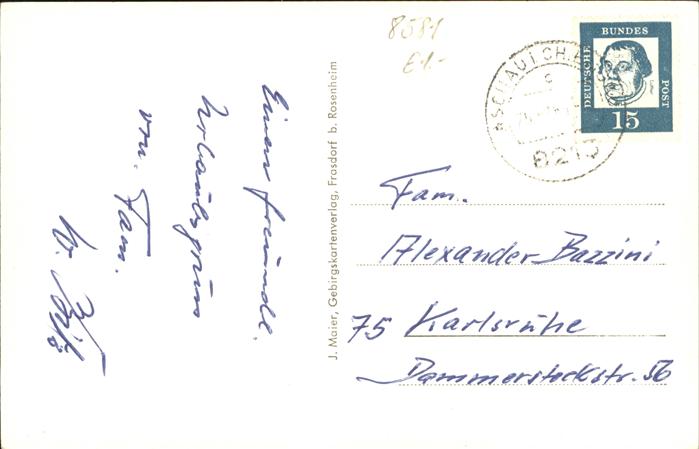 8581
€1.-
Einen freundl.
Urlaubsgruss
von Fam.
W.
J. Maier, Gebirgskartenverlag, Frasdorf b. Rosenheim
DEUTSCHE BUNDES POST
15
8213
Fam.
Alexander Bazzini
75 Karlsruhe
Dammerstockstr. 56